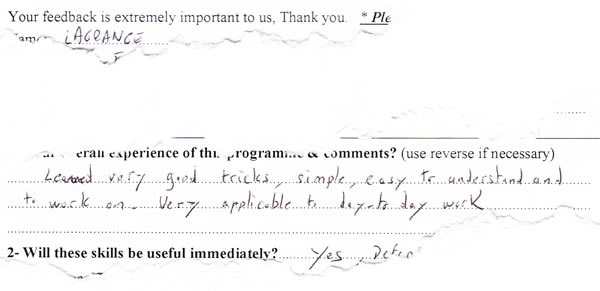 Your feedback is extremely important to us, Thank you. * Ple
LAGRANGE
experience of this programme & comments? (use reverse if necessary)
Learned very good tricks, simple, easy to understand and
to work on. Very applicable to day-to day work
2- Will these skills be useful immediately? Yes,